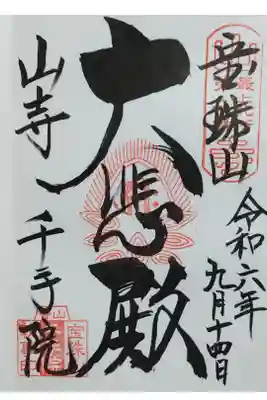 宝珠山
令和六年
九月十四日
大悲殿
山寺千手院